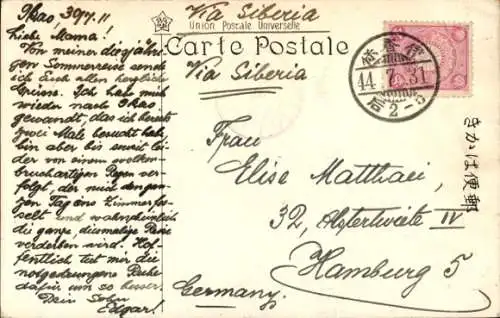 Ikao, 30/7.11
Liebe Mama!
Von meiner diesjähri-
gen Sommerreise sende
ich Euch allen herzliche
Grüsse. Ich habe mich
wieder nach Ikao
gewandt, das ich bereits
zwei Male besucht habe,
bin aber bis soweit leider
von einem wolken-
bruchartigen Regen ver-
folgt, der mich den gan-
zen Tag ans Zimmer fes-
selt und wahrscheinlich
die ganze, diesmalige Reise
verderben wird. Hof-
fentlich tut mir die
notgedrungene Ruhe
dafür um so besser.
Dein Sohn
Edgar!
Via Siberia
Union Postale Universelle
Carte Postale
Via Siberia
伊香保
44.7.31
后2-5
きかは便郵
Frau
Elise Matthaei,
32, Alstertwiete IV
Hamburg 5
Germany.